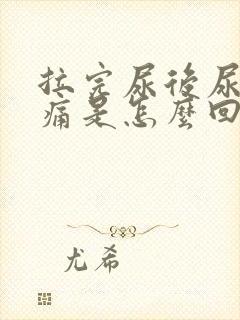 拉完尿後尿
痛是怎麼回
尤希